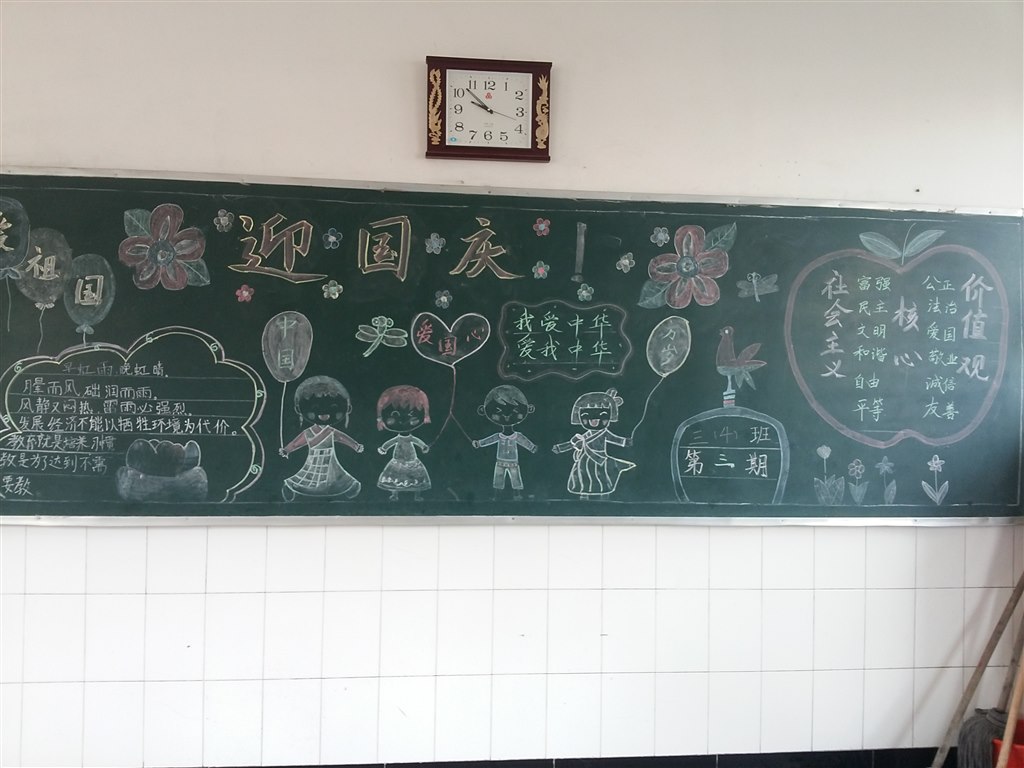 12
11
1
10
2
9
3
8
4
7
6
5
迎国庆！
祖
国
中国
爱国心
我爱中华
爱我中华
早虹雨，晚虹晴。
月晕而风，础润而雨。
风静又闷热，雷雨必强烈。
发展经济不能以牺牲环境为代价。
教是为了达到不需
要教
三（4）班
第三期
社会主义
核心
价值观
富强
民主
文明
和谐
自由
平等
公正
法治
爱国
敬业
诚信
友善